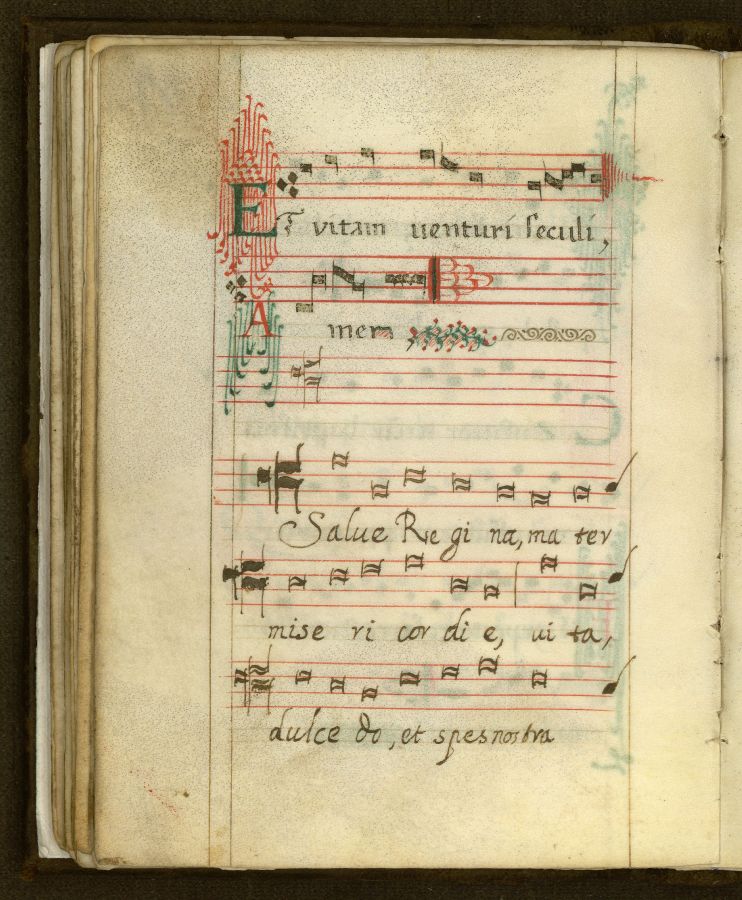 Et vitam uenturi seculi,
Amem
Salue Re gi na, ma ter
mise ri cor di e, ui ta,
dulce do, et spes nostra